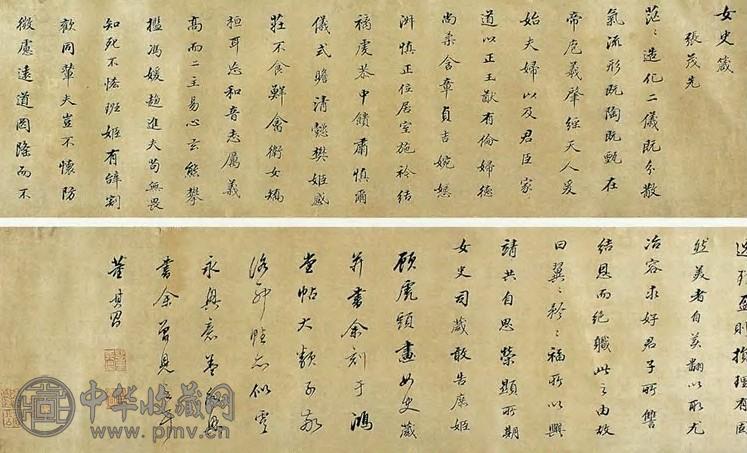 女史箴
張茂先
茫〻造化二儀既分散
氣流形既陶既甄在
帝庖羲肇經天人爰
始夫婦以及君臣家
道以正王猷有倫婦德
尚柔含章貞吉婉嫕
淑慎正位居室施衿結
褵虔恭中饋肅慎爾
儀式瞻清懿樊姬感
莊不食鮮禽衛女矯
桓耳忘和音志厲義
高而二主易心玄熊攀
檻馮媛趍進夫無畏
知死不恡班姬有辭割
歡同輦夫豈不懷防
微慮遠道罔隆而不
盈則損理有固
然美者自美翩以取尤
冶容求好君子所讐
結恩而絕職此之由故
曰翼〻矜〻福所以興
靖共自思榮顯所期
女史司箴敢告庶姬
顧虎頭畫女史箴
並書余刻于鴻
堂帖大類子敬
洛神帖亦似虞
永興意
書余曾見
董其昌
中华收藏网
www.pmv.cn